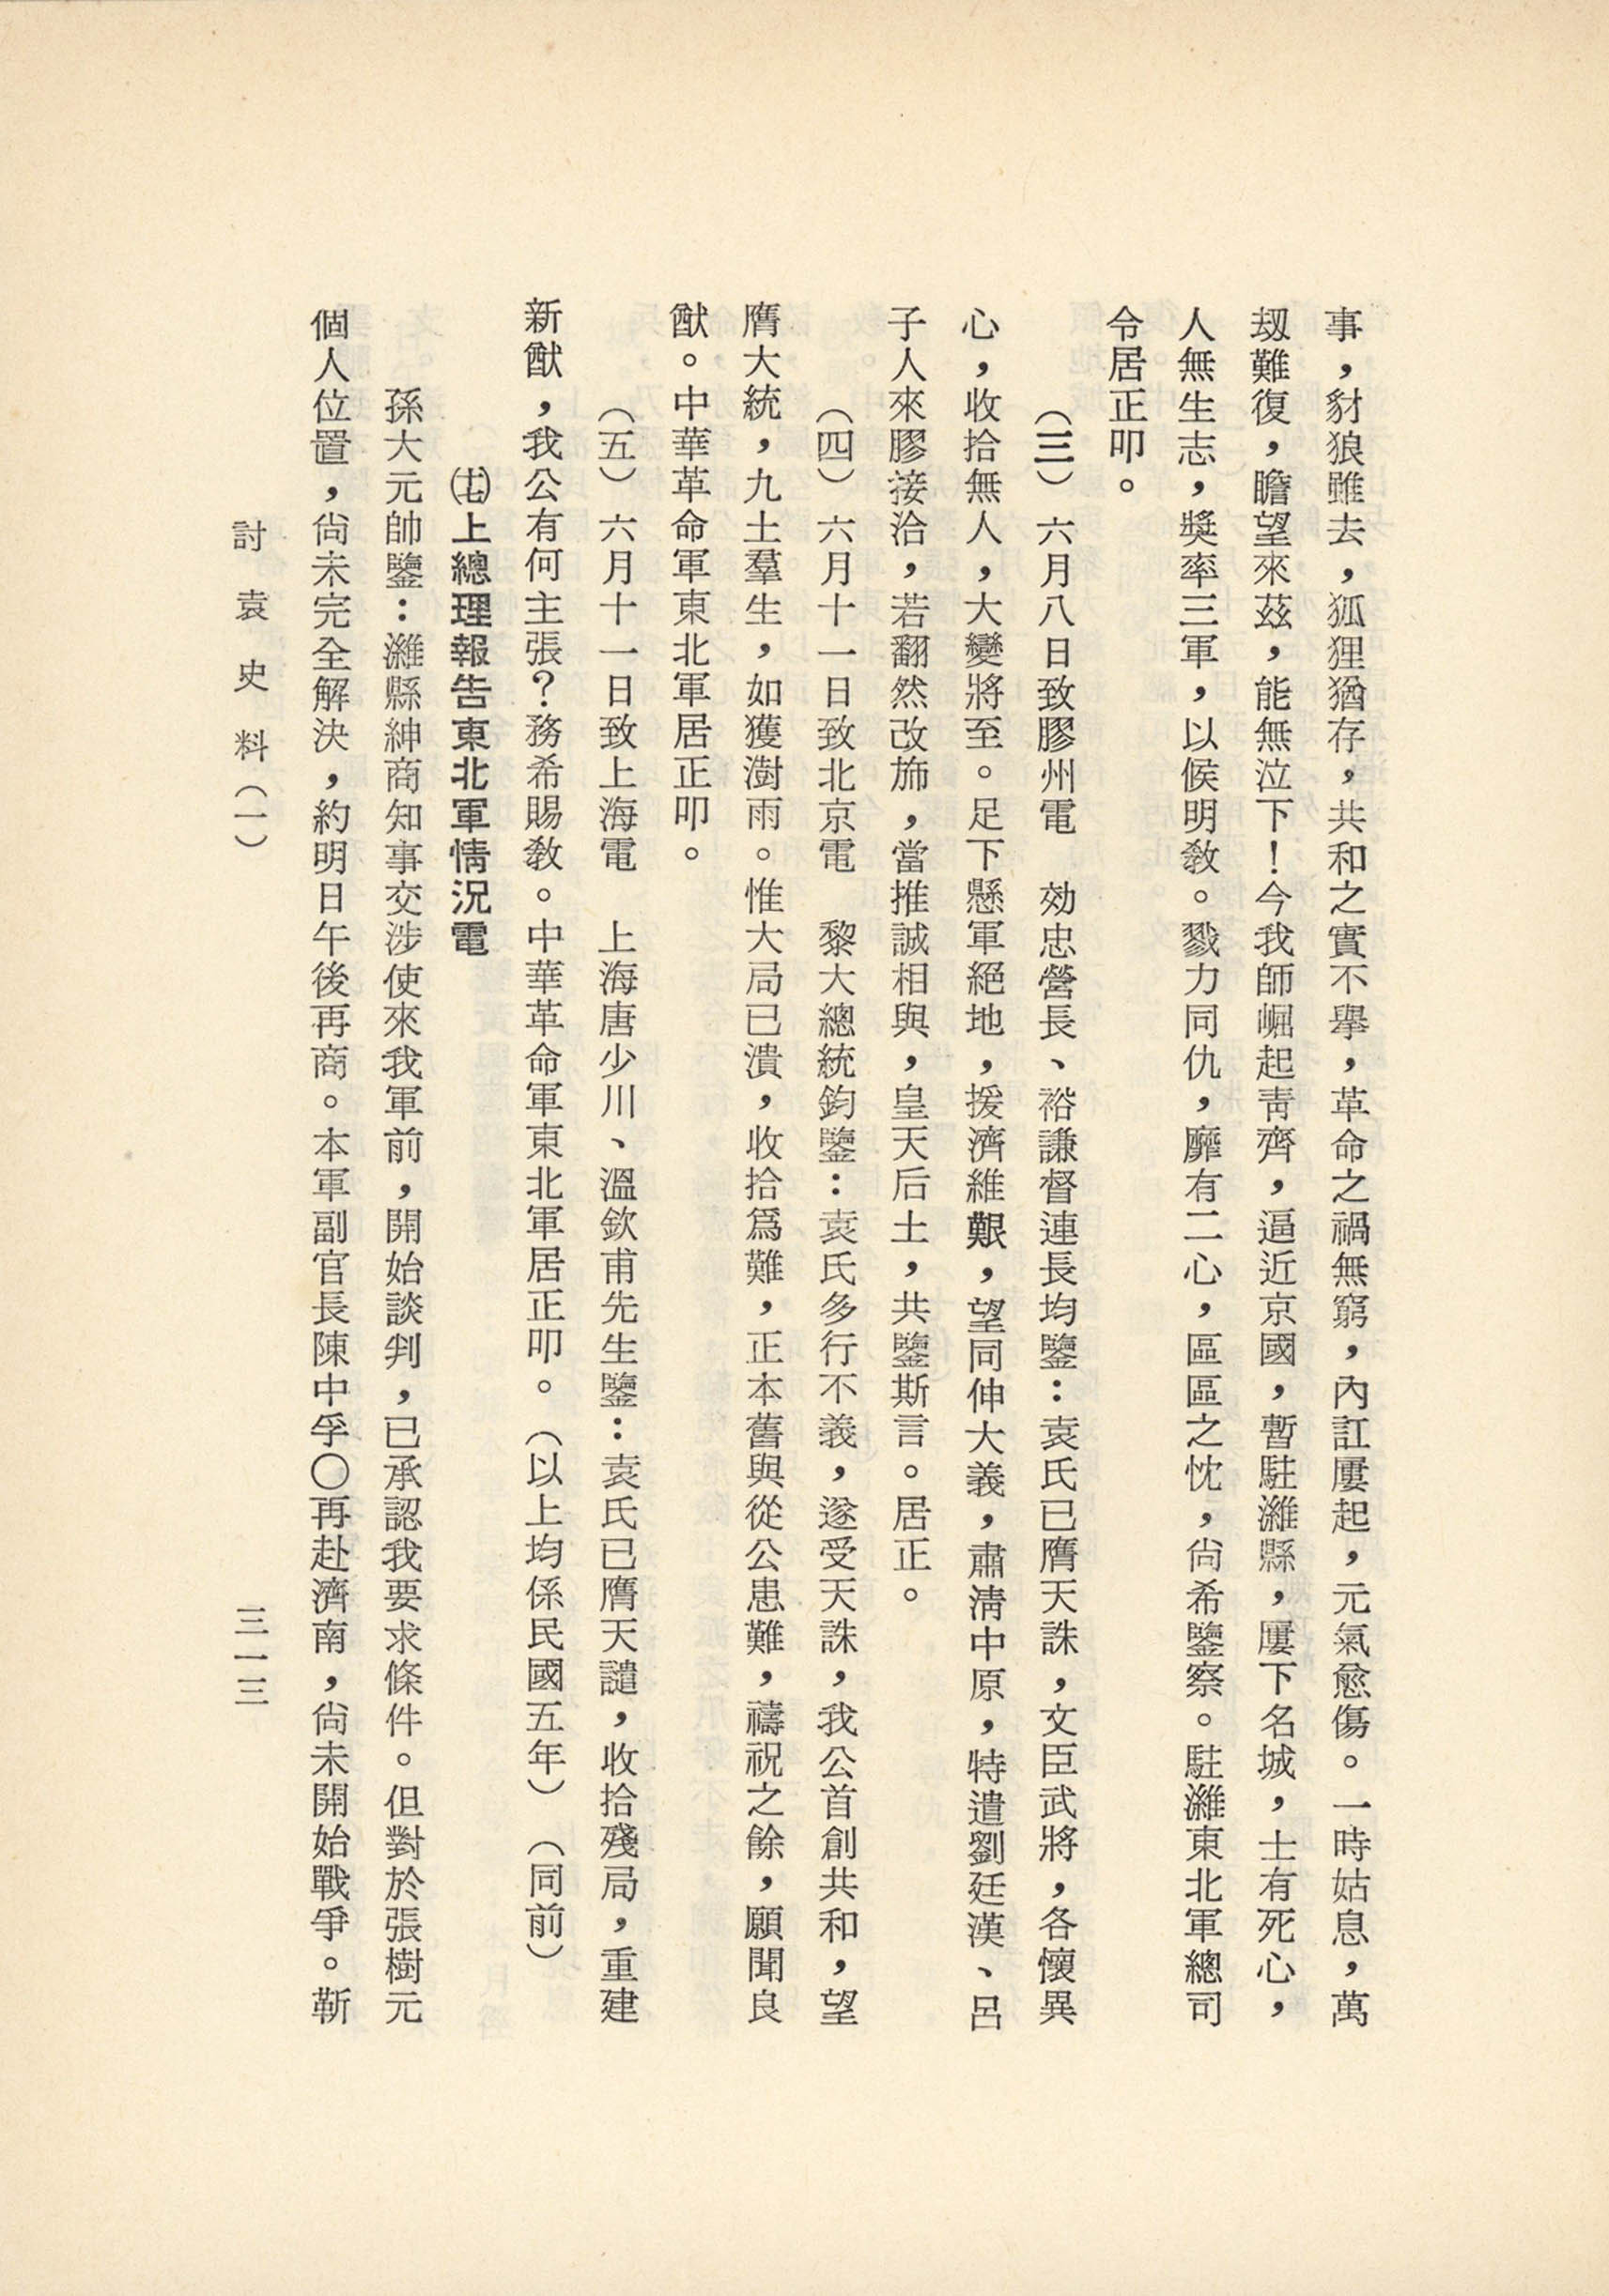 事，豺狼雖去，狐狸猶存，共和之實不舉，革命之禍無窮，內訌屢起，元氣愈傷。一時姑息，萬
刼難復，瞻望來茲，能無泣下！今我師崛起靑齊，逼近京國，暫駐濰縣，屢下名城，士有死心，
人無生志，獎率三軍，以候明敎。戮力同仇，靡有二心，區區之忱，尙希鑒察。駐濰東北軍總司
令居正叩。
（三）六月八日致膠州電　効忠營長、裕謙督連長均鑒：袁氏已膺天誅，文臣武將，各懷異
心，收拾無人，大變將至。足下懸軍絕地，援濟維艱，望同伸大義，肅淸中原，特遣劉廷漢、呂
子人來膠接洽，若翻然改斾，當推誠相與，皇天后土，共鑒斯言。居正。
（四）六月十一日致北京電　黎大總統鈞鑒：袁氏多行不義，遂受天誅，我公首創共和，望
膺大統，九土羣生，如獲澍雨。惟大局已潰，收拾爲難，正本舊與從公患難，禱祝之餘，願聞良
猷。中華革命軍東北軍居正叩。
（五）六月十一日致上海電　上海唐少川、溫欽甫先生鑒：袁氏已膺天譴，收拾殘局，重建
新猷，我公有何主張？務希賜敎。中華革命軍東北軍居正叩。（以上均係民國五年）（同前）
㈩七上總理報告東北軍情況電
孫大元帥鑒：濰縣紳商知事交涉使來我軍前，開始談判，已承認我要求條件。但對於張樹元
個人位置，尙未完全解決，約明日午後再商。本軍副官長陳中孚〇再赴濟南，尙未開始戰爭。靳
討袁史料（一）
三一三